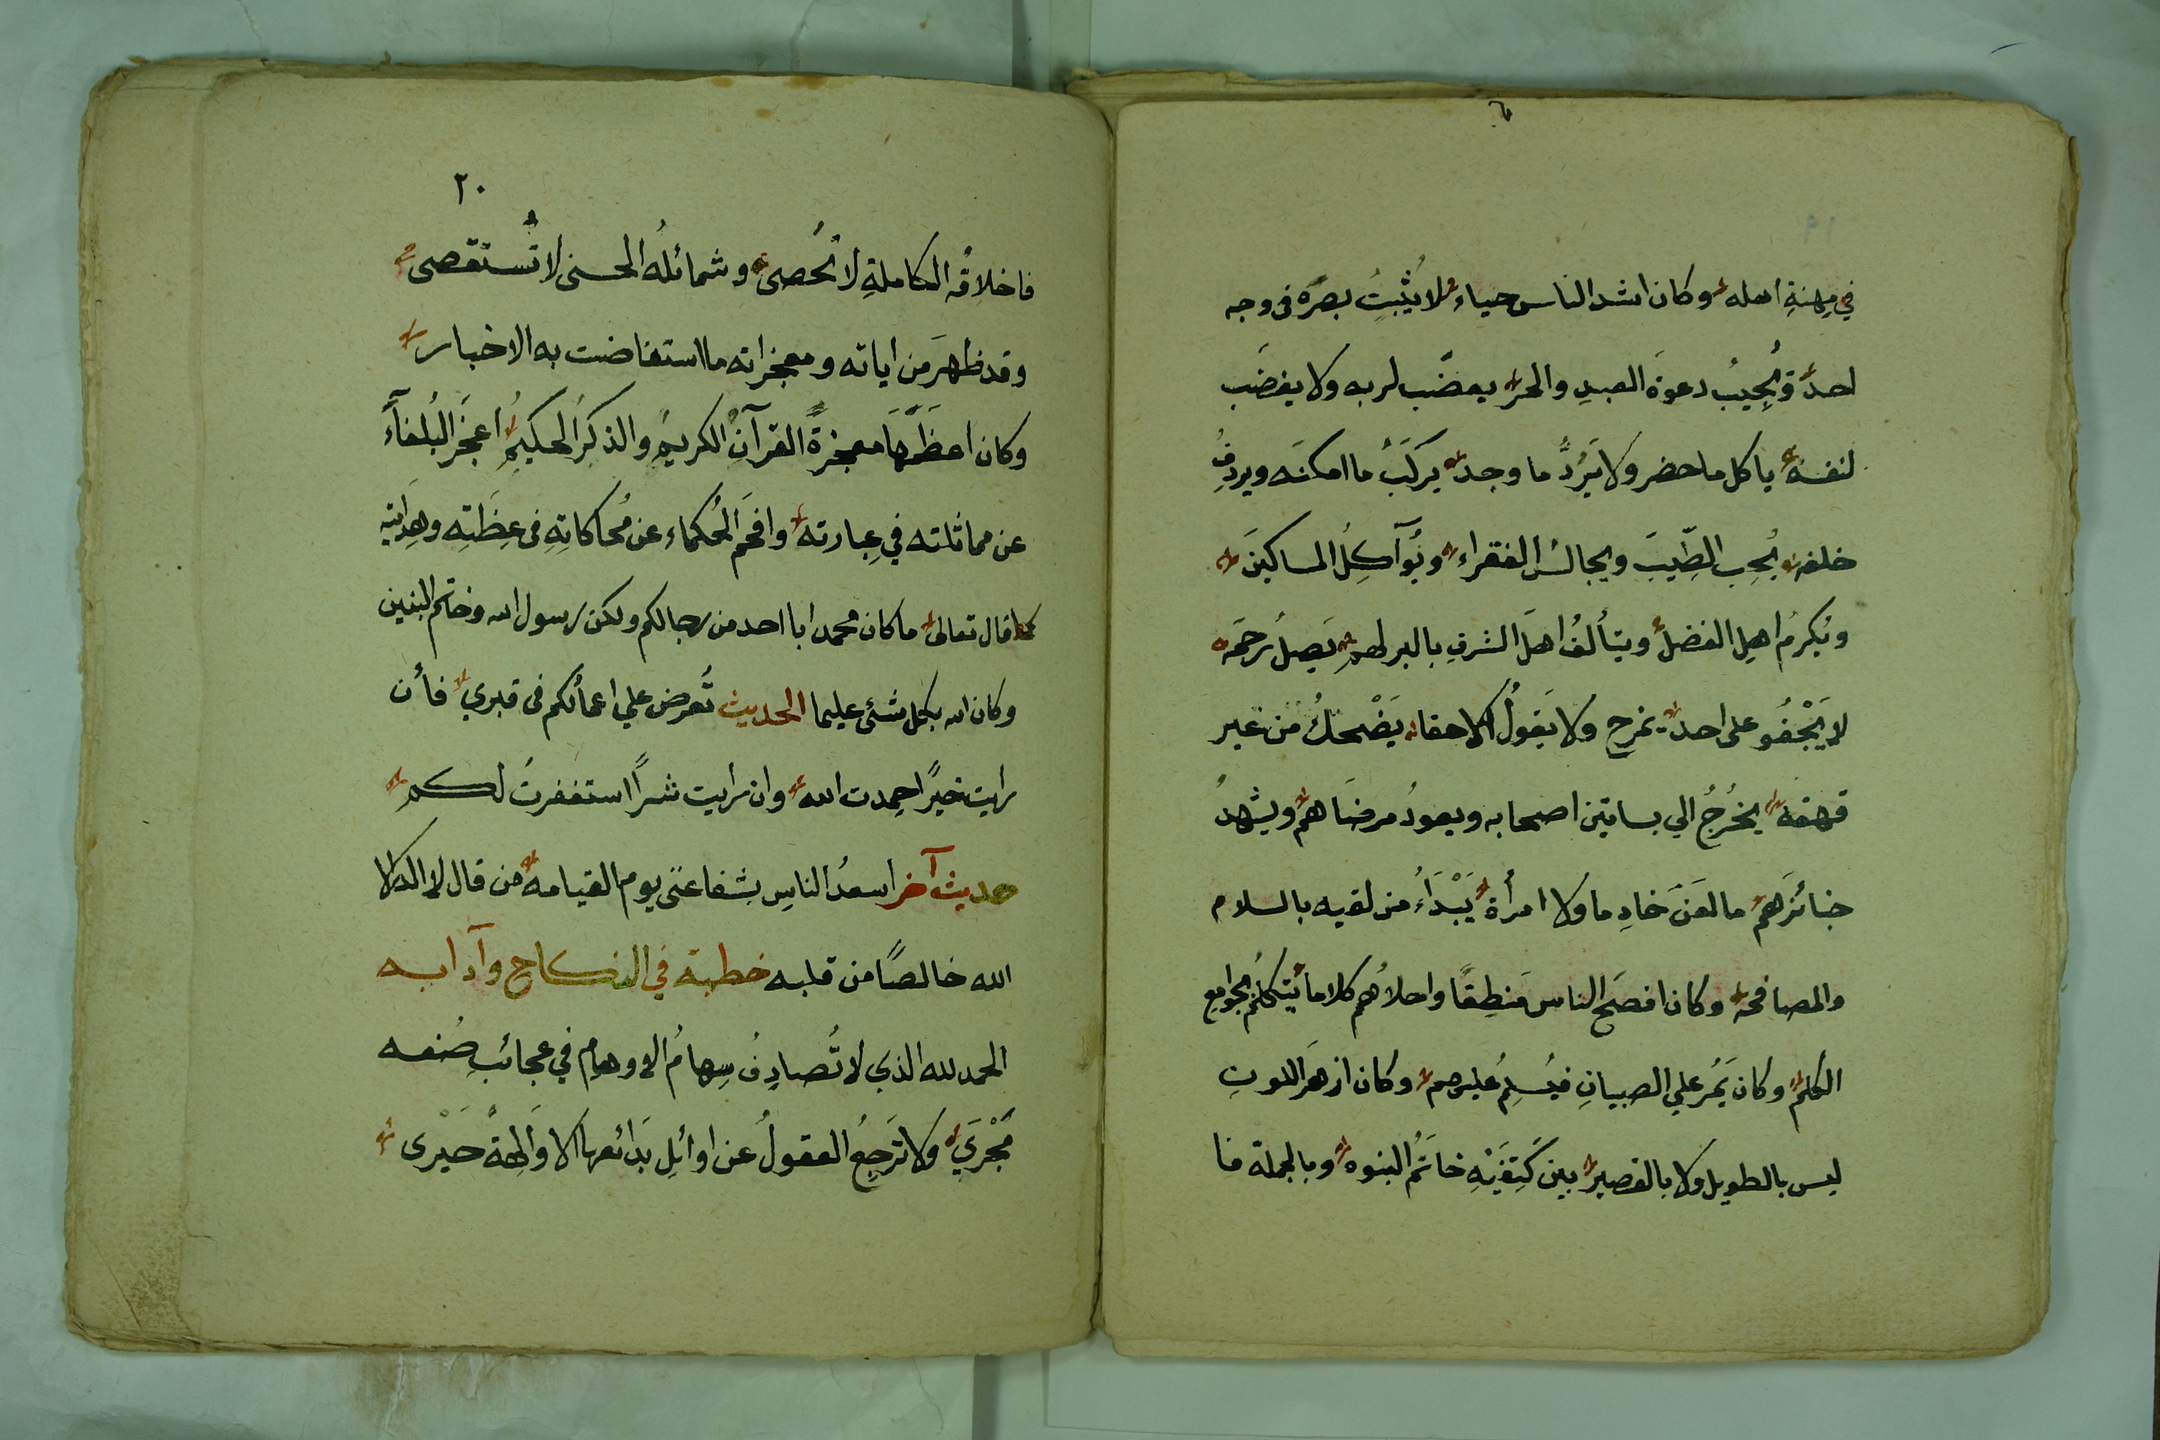 في مِهنةِ اهله وكان اشد الناس حياء لا يُثبِتُ بصرَه فى وجه
احد ويُجِيبُ دعوَة العبدِ والحر يغضَب لربه ولا يغضَب
لنفسه ياكل ما حضر ولا يَرُدُّ ما وجد يركَبُ ما امكنَه ويردِفُ
خلفه يُحِب الطِّيبَ ويجالسُ الفقراء ويُوآكِلُ المساكينَ
ويُكرمُ اهل الفضل ويتألفُ اهلَ الشرفِ بالبر لهم يَصِلُ رحمَه
لا يَجْفُو على احد يمزح ولا يَقولُ الا حقا يَضْحكُ من غير
قهقهة يخُرجُ الي بساتين اصحابه ويعودُ مرضَاهم ويشهدُ
جنائزَهم ما لعَنَ خادِما ولا امرأة يَبْدَاءُ من لقيه بالسلام
والمصافحه وكان افصَح الناس مَنطِقًا واحلاهُم كلاما يتكلمُ بجوامِع
الكلم وكان يَمُر علي الصبيانِ فيُسلِمُ عليهم وكان ازهَر اللونِ
ليس بالطويل ولا بالقصير بين كَتِفَيْهِ خاتَمُ النبوه وبالجملة فا
٢٠
فاخلاقُه الكاملةِ لا تُحُصى وشمائلهُ الحسنى لا تُستقصى
وقد ظهرَ من اياته ومعجزاته ما استفاضت به الاخبار
وكان اعظَمَهَا معجزةً القرآنُ الكريم والذكرُ الحكيمُ اعجَزَ البُلغآءَ
عن مماثلته في عِبارته وافحَم الحُكماء عن مُحاكاتِهِ فى عِظَتِه وهِدَايته
كما قال تعالى ما كان محمد ابا احد من رجالكم ولكن رسول الله وخاتم النبنين
وكان الله بكل شئى عليما الحديث تُعرض علي اعمالُكم فى قبري فأن
رايت خيرًا حمِدت الله وان رايت شرًا استغفرتُ لكم
حديث آخر اسعدُ الناسِ بشفاعتى يوم القيامه من قال لا اله الا
الله خالصًا من قلبه خطبة في النكاح وآدابه
الحمد لله الذي لا تُصادِفُ سِهامُ الاوهام في عجائبِ صُنعه
مَجْرَي ولا تَرجِعُ العقولُ عن اوائلِ بَدائعها الا وَالِهةً حَيْرى